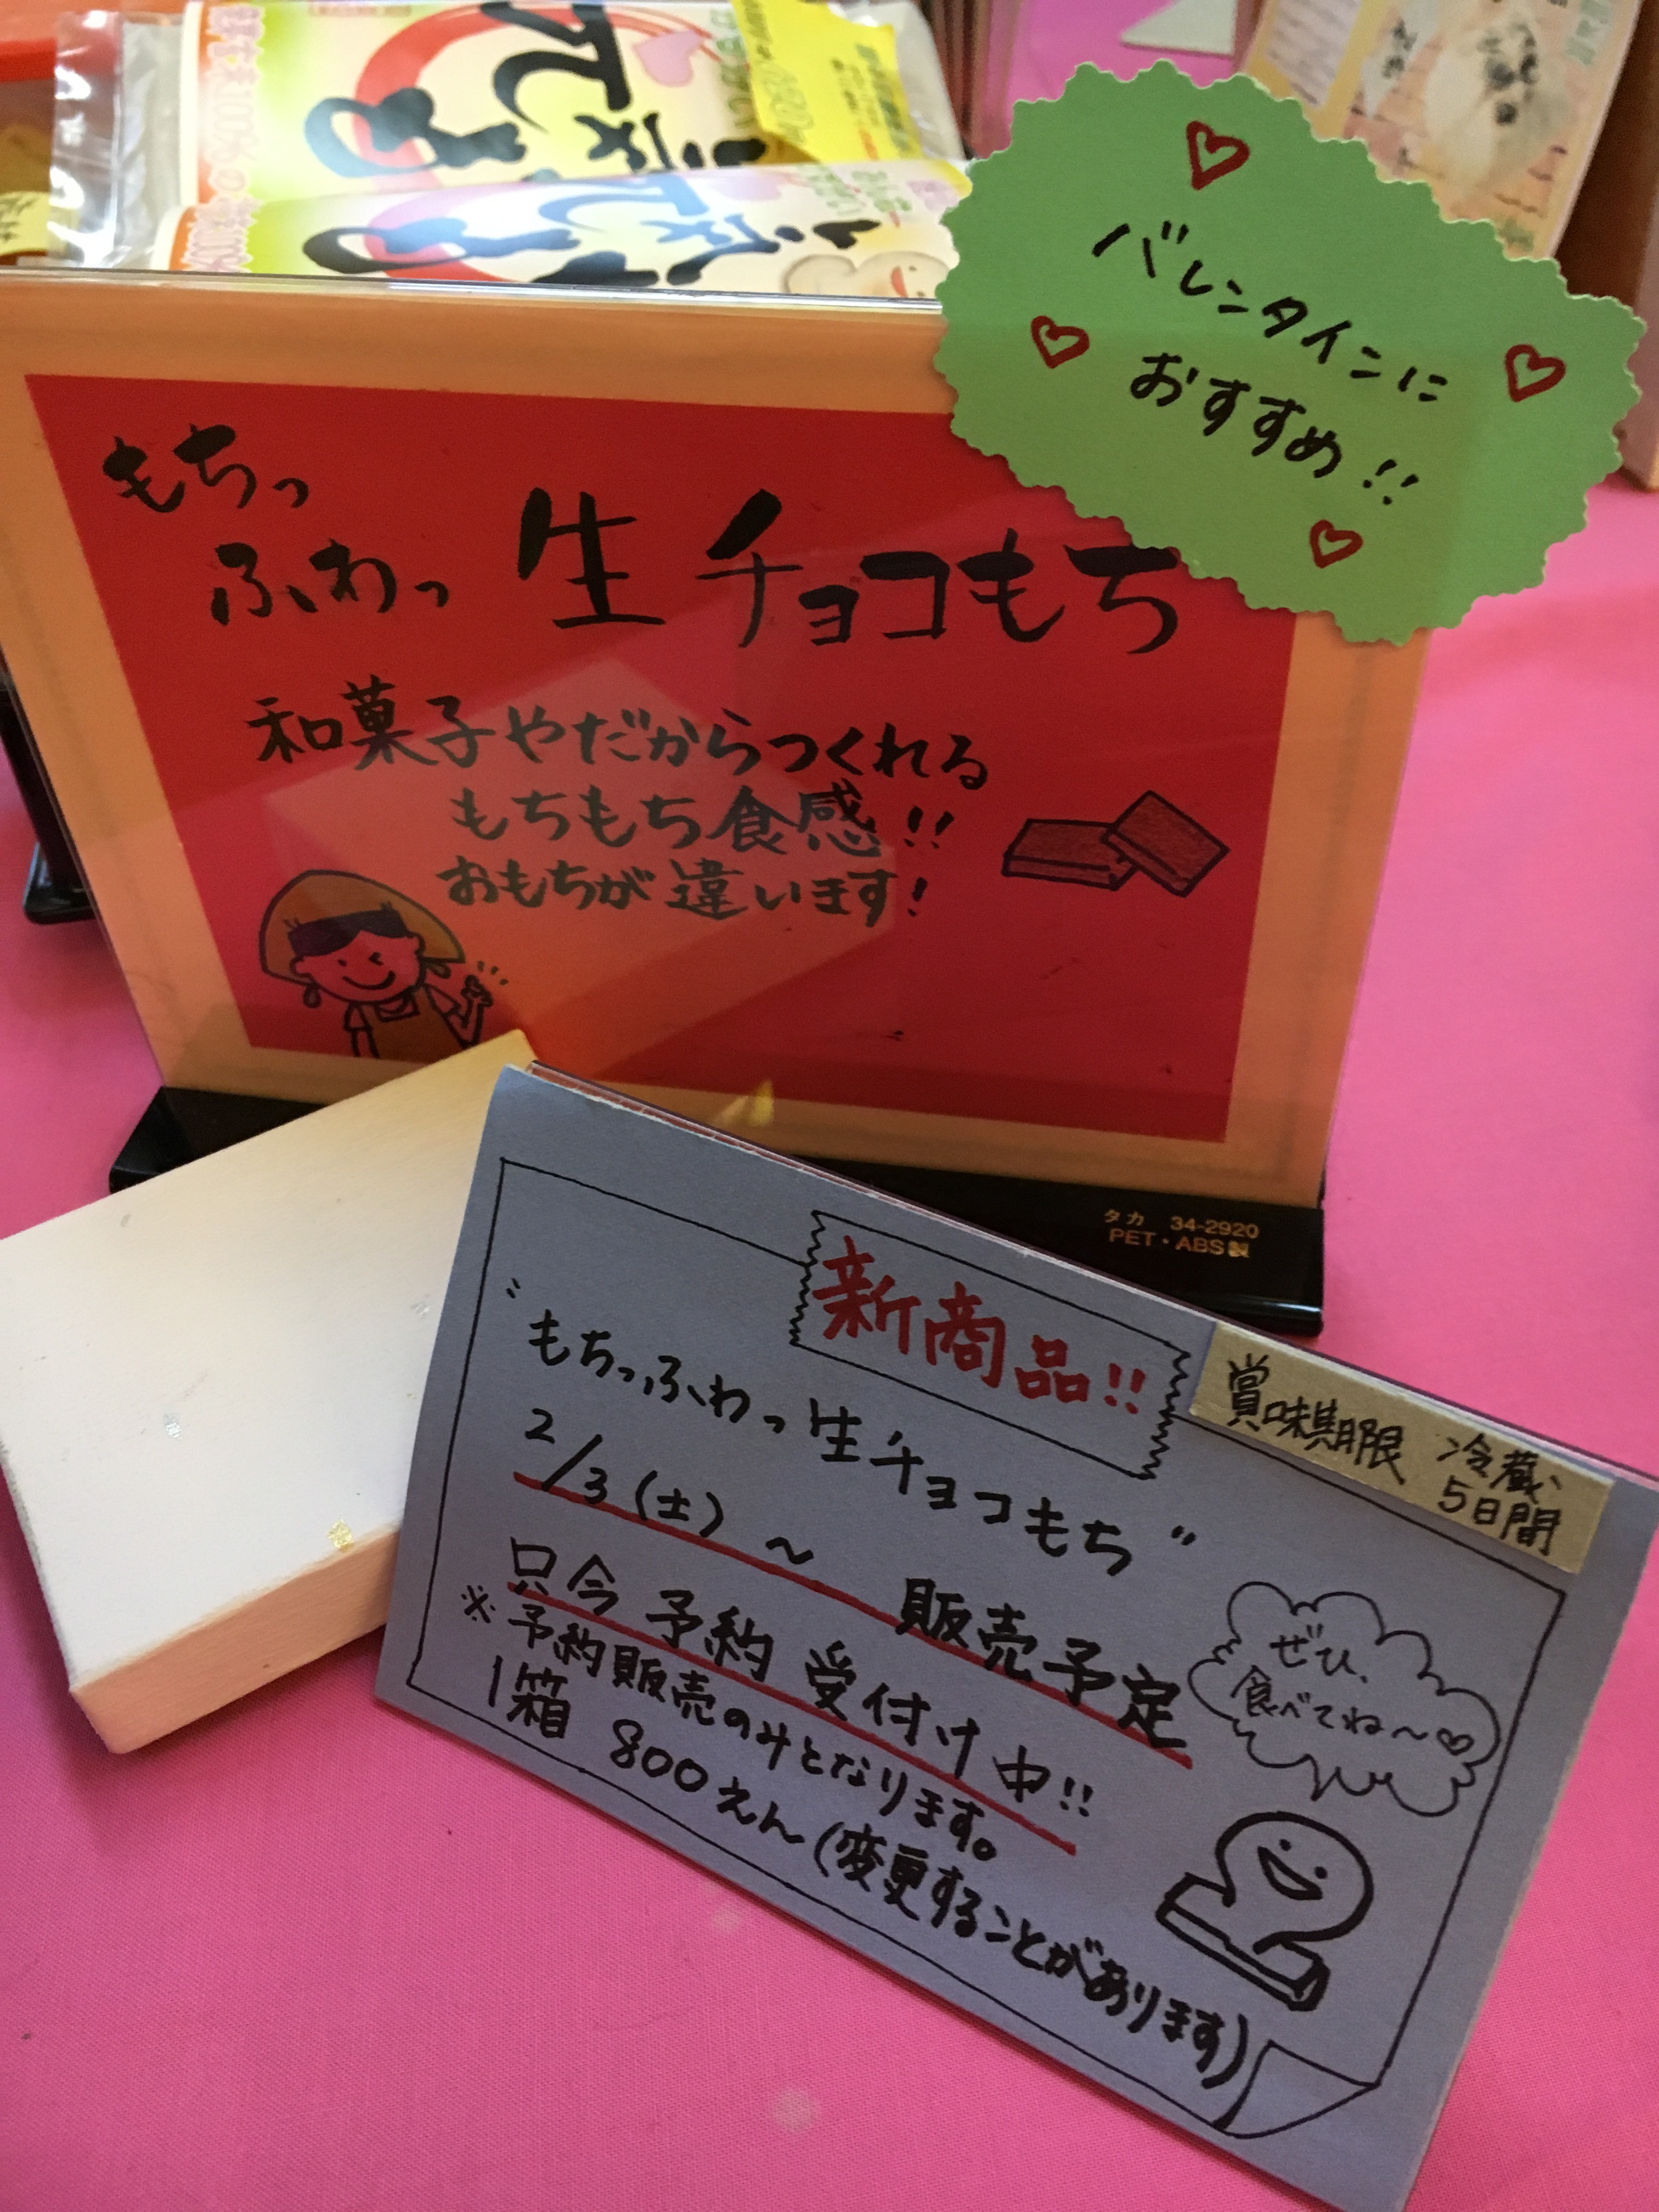 バレンタインに
おすすめ!!
もちっ
ふわっ 生チョコもち
和菓子やだからつくれる
もちもち食感!!
おもちが違います!
タカ 34-2920
PET・ABS製
新商品!!
賞味期限 冷蔵
5日間
"もちっふわっ生チョコもち"
2/3(土)~ 販売予定
只今予約受付け中!!
※予約販売のみとなります。
1箱 800えん(変更することがあります)
ぜひ、
食べてね~♡